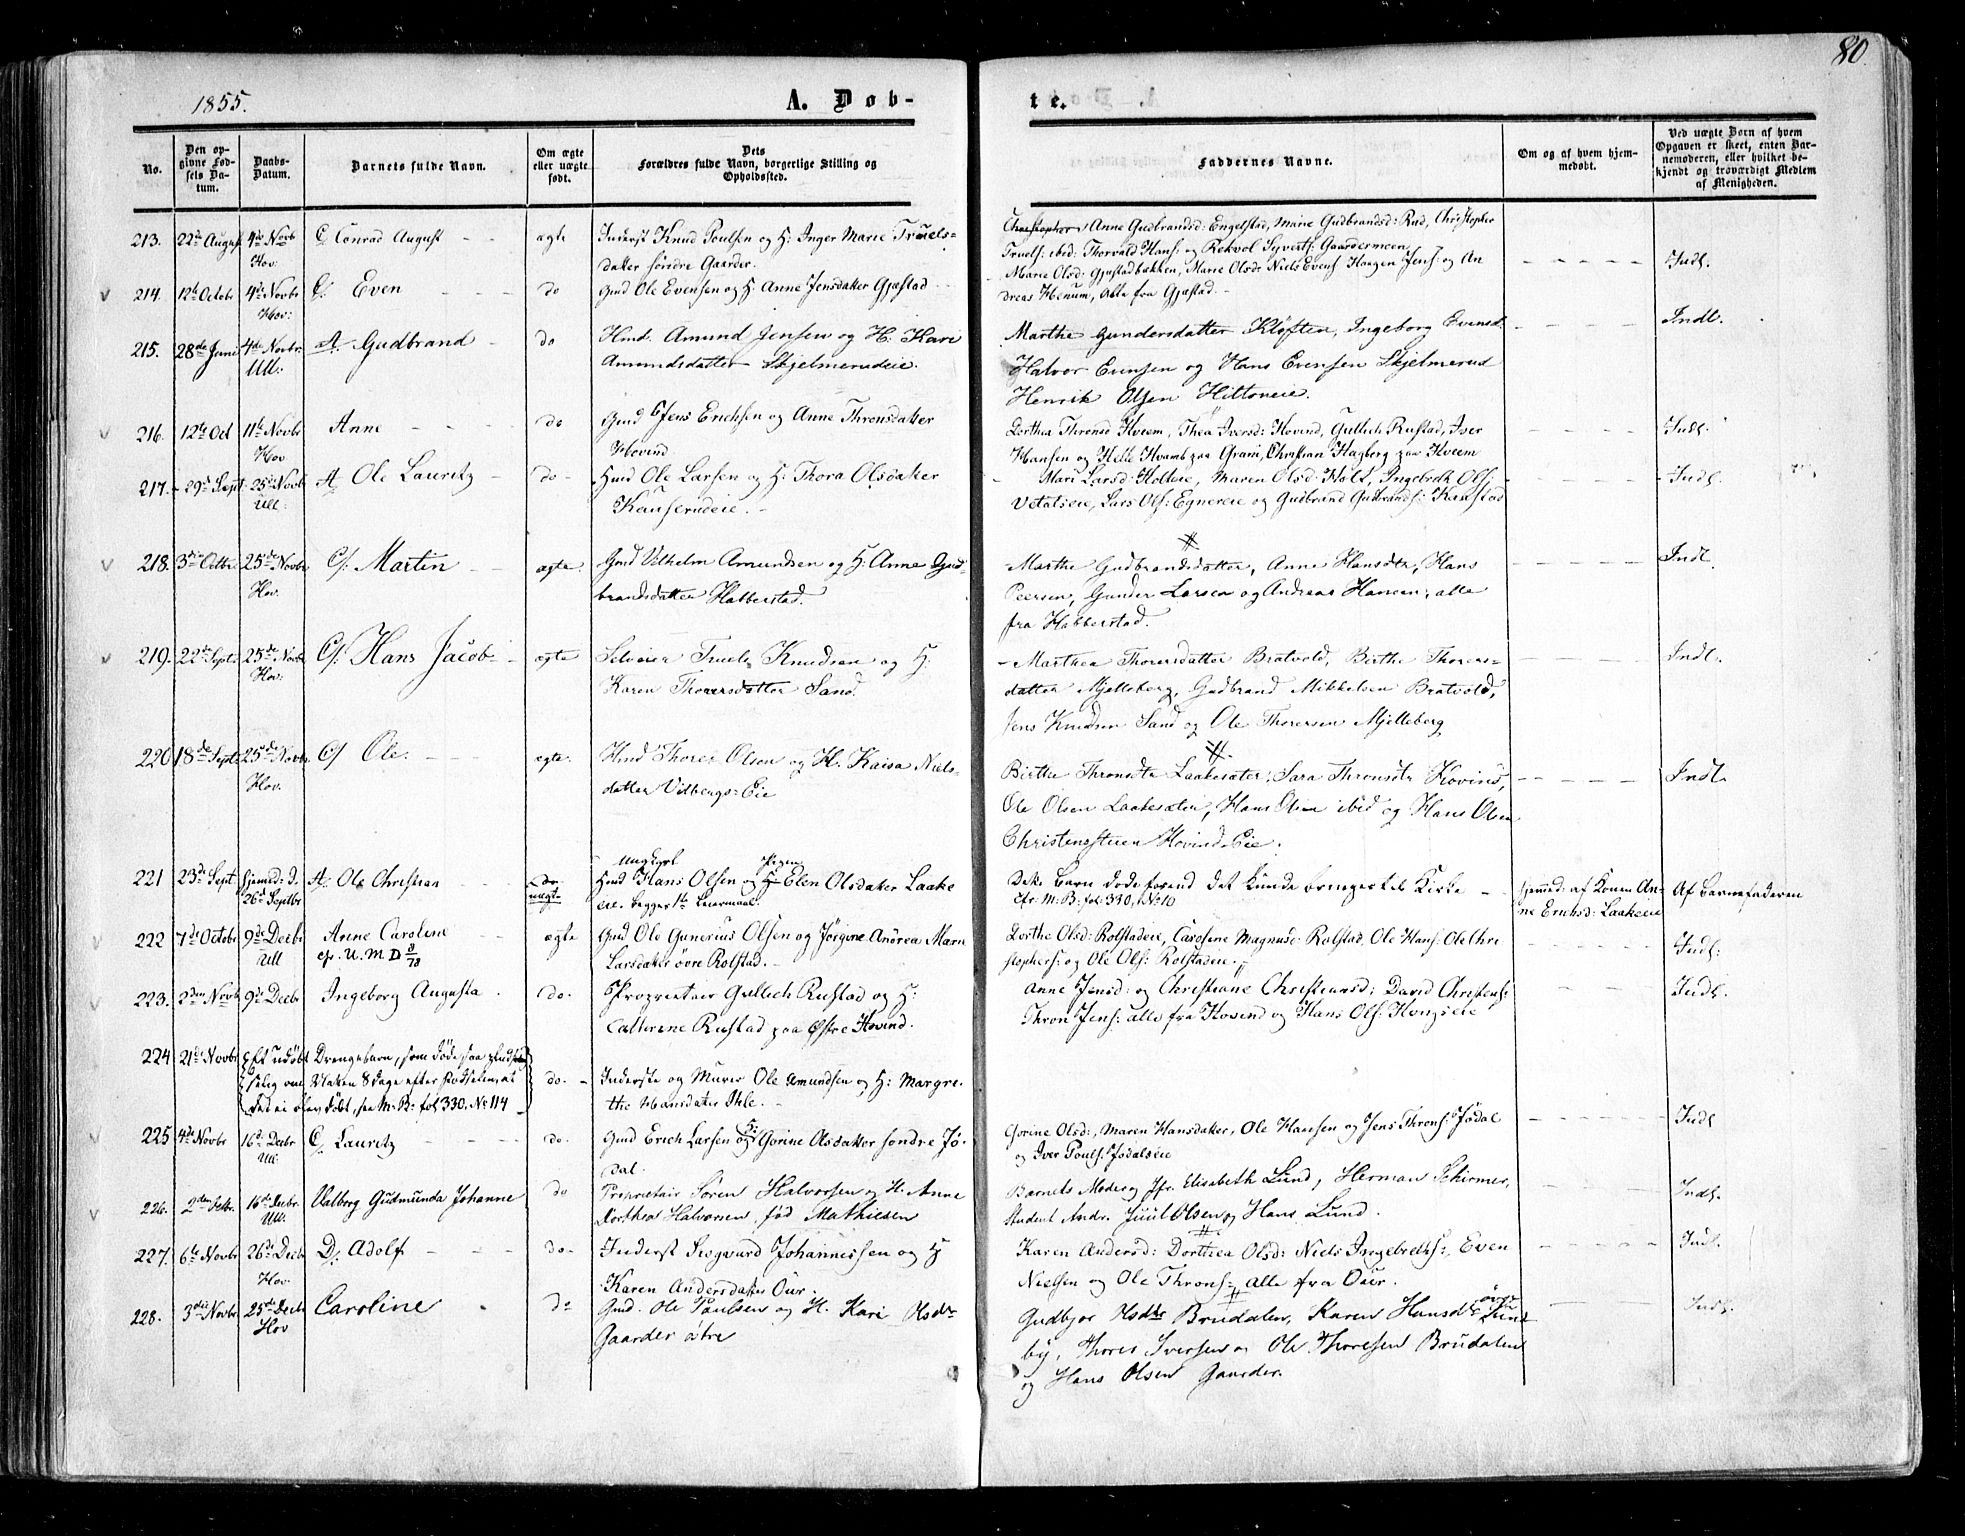 80.
1855. A. Døb- te.
No.
Den opgivne Fødsels Datum.
Daabs-Datum.
Barnets fulde Navn.
Om ægte eller uægte født.
Dets Forældres fulde Navn, borgerlige Stilling og Opholdssted.
Faddernes Navne.
Om og af hvem hjemmedøbt.
Ved uægte Børn af hvem Opgaven er skeet, enten Barnemoderen, eller hvilket bekjendt og troværdigt Medlem af Menigheden.
213. 22de August 4de Novb Hov. C. Conrad August - - ægte Inderst Knud Poulsen og H: Inger Marie Truels-
datter søndre Gaarder.
Anne Gudbrandsd: Engelstad, Marie Gudbrandsd: Rud, Christopher
Truels: ibid: Thorvald Hans: og Rekvol Syverts: Gaardermoen
Indl.
214. 12te Octobr 4de Novbr Hov: C. Even - - - do Gmd Ole Evensen og H Anne Jensdatter Gjæstad
Marie Olsd: Gjæstadbakken, Marie Olsdr Niels Evens Haagen Jens: og An
dreas Henum, alle fra Gjæstad.
Indl.
215. 28de Juni 4de Novbr. Ull: A. Gudbrand - do Hmd. Amund Jensen og H: Kari
Amundsdatter Skjelmerudeie.
Marthe Gundersdatter Kløften, Ingeborg Evensd.
Halvor Evensen og Hans Evensen Skjelmerud
Henrik Olsen Hiltoneie.
216. 12te Oct 11te Novbr Hov Anne - - - do Gmd Jens Erichsen og Anne Thronsdatter
Hovind
Dorthea Thronsd Hveem, Thea Iversd: Hovind, Gullich Rustad, Iver
Hansen og Helle Hvamb paa Grani, Christian Hagberg paa Hveem
Indl.
217. 29de Sept 25de Novb Ull: A Ole Lauritz - do - Hmd Ole Larsen og H: Thora Olsdatter
Kauserudeie.
Mari Larsd: Holteie, Maren Olsd: Holt, Ingebreth Ols:
Lars Ols: Egnereie og Gudbrand Gudbrands: Knastad
Indl.
218. 3die Octbr. 25de Novbr. Hov. C/. Martin - ægte. Gmd Vilhelm Amundsen og H: Anne Gud-
brandsdatter Habberstad.
Marthe Gudbrandsdatter, Anne Hansdtr, Hans
Peersen, Gunder Larsen og Andreas Hansen, alle
fra Habberstad.
Indl.
219. 22de Septr 25de Novbr. Hov: C/. Hans Jacob - ægte Selveier Truels Knudsen og H:
Karen Thorersdatter Sand.
Marthea Thorersdatter Bratvold, Birthe Thorers-
datter Mjelleberg, Gudbrand Mikkelsen Bratvold,
Jens Knudsen Sand og Ole Thorersen Mjelleberg
Indl.
220 18de Septr 25de Novbr. Hov. C/ Ole. - - ægte. Hmd Thorer Olsen og H. Kaisa Niels-
datter Vilbergs-Eie
Birthe Thronsdtr Laakesæter, Sara Thronsdtr Hovind,
Ole Olsen Laakesæter, Hans Olsen ibid og Hans Olsen
Christensstuen Hovinds-Eie.
Indl.
221 23de Sept hjemmed: d. 26de Septbr A. Ole Christian - - do uægte Ungkarl Hmd Hans Olsen og Pigen H Elen Olsdatter Laake
eie. begges 1ste Leiermaal.
Dette Barn døde forend det kunde bringes til Kirke
cfr. M: B: fol: 340, No 10
hjemmed: af Konen An-
ne Eriksd: Laakeeie
Af Barnefaderen
222 7de Octobr 9de Decbr Ull Anne Caroline - ægte Gmd Ole Gunerius Olsen og Jørgine Andrea Marn
cfr. U. M D 8/78
Larsdatter øvre Rolstad.
Dorthe Olsd: Rolstadeie, Caroline Magnusd: Rolstad, Ole Hans: Ole Chri-
stophers: og Ole Ols: Rolstadeie.
Indl:
223. 2den Novb 9de Decbr Ingeborg Augusta . do. Proprietair Gullich Rustad og H:
Cathrine Rustad paa Østre Hovind.
Anne Jensd: og Christiane Christiansd: David Christens:
Thron Jens: alle fra Hovind og Hans Ols: Hongseie
Indl.
224 21de Novbr Et udøbt Drengebarn, som døde
8 Dage efter Fødselen, at
det ei blev døbt, see M: B: fol 330, No 114
do. Inderste og Murer Ole Amundsen og H: Margre-
the Hansdatter Ihle.
225 4de Novbr 16de Decbr Ull C. Lauritz - - - do. Gmd Erich Larsen og H: Gorine Olsdatter søndre Jø-
dal.
Gorine Olsd:, Maren Hansdatter, Ole Hansen og Jens Throns: Jødal
og Iver Pouls: Jødalseie
Indl
226. 2den Septbr. 16de Decbr. Ull. Valborg Gudmunda Johanne do Proprietair Søren Halvorsen og H. Anne
Dorthea Halvorsen, fød Mathiesen
Barnets Moder og Jfr. Elisabeth Lund, Herman Schirmer,
Student Andr. Juul Olsen og Hans Lund.
Indl.
227. 6te Novbr 26de Decb Hov. D. Adolf - - - do. Inderst Sivgaard Johannessen og H
Karen Andersdatter Ouer.
Karen Andersd: Dorthea Olsd: Niels Ingebreths:, Even
Nielsen og Ole Throns: alle fra Ouer.
Indl.
228. 3die Novbr 25de Decb Hov Caroline . do Gmd. Ole Paulsen og H. Kari Olsdtr
Gaarder østre
Gudbjør Olsdtr Brudalen, Karen Hansdtr øvre Lund-
by, Thorer Iversen og Ole Thoresen Brudalen
og Hans Olsen Gaarder.
Indl.